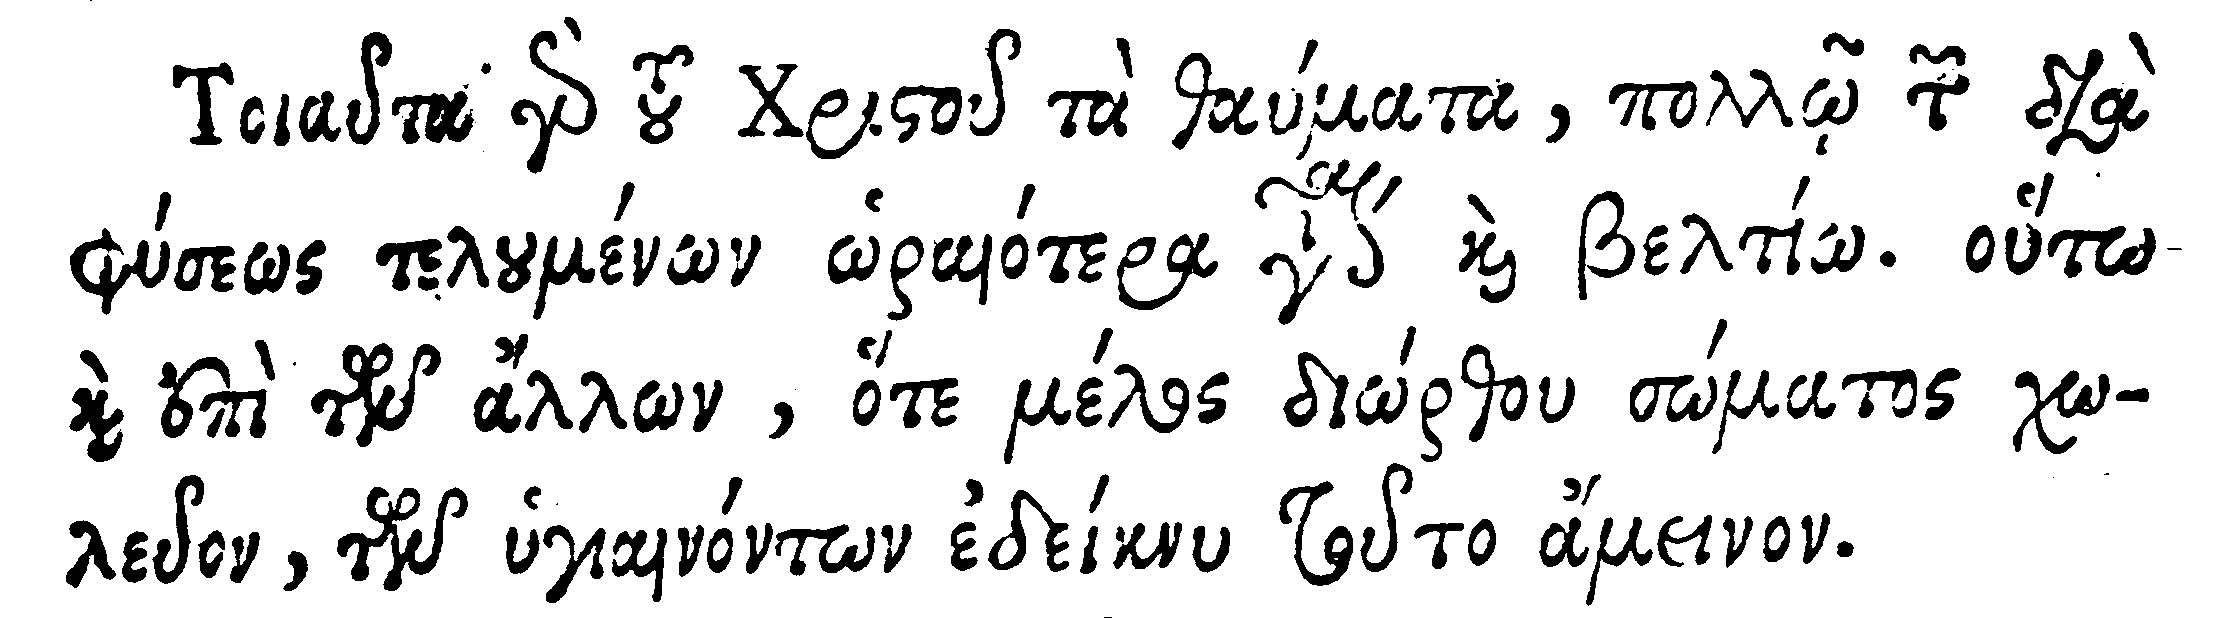 Τοιαῦτα γὰρ τοῦ Χριστοῦ τὰ θαύματα, πολλῷ τῶν διὰ
φύσεως τελουμένων ὡραιότερα γίνεται καὶ βελτίω. οὕτω
καὶ ἐπὶ τῶν ἄλλων, ὅτε μέλος διώρθου σώματος χω-
λεῦον, τῶν ὑγιαινόντων ἐδείκνυ τοῦτο ἄμεινον.